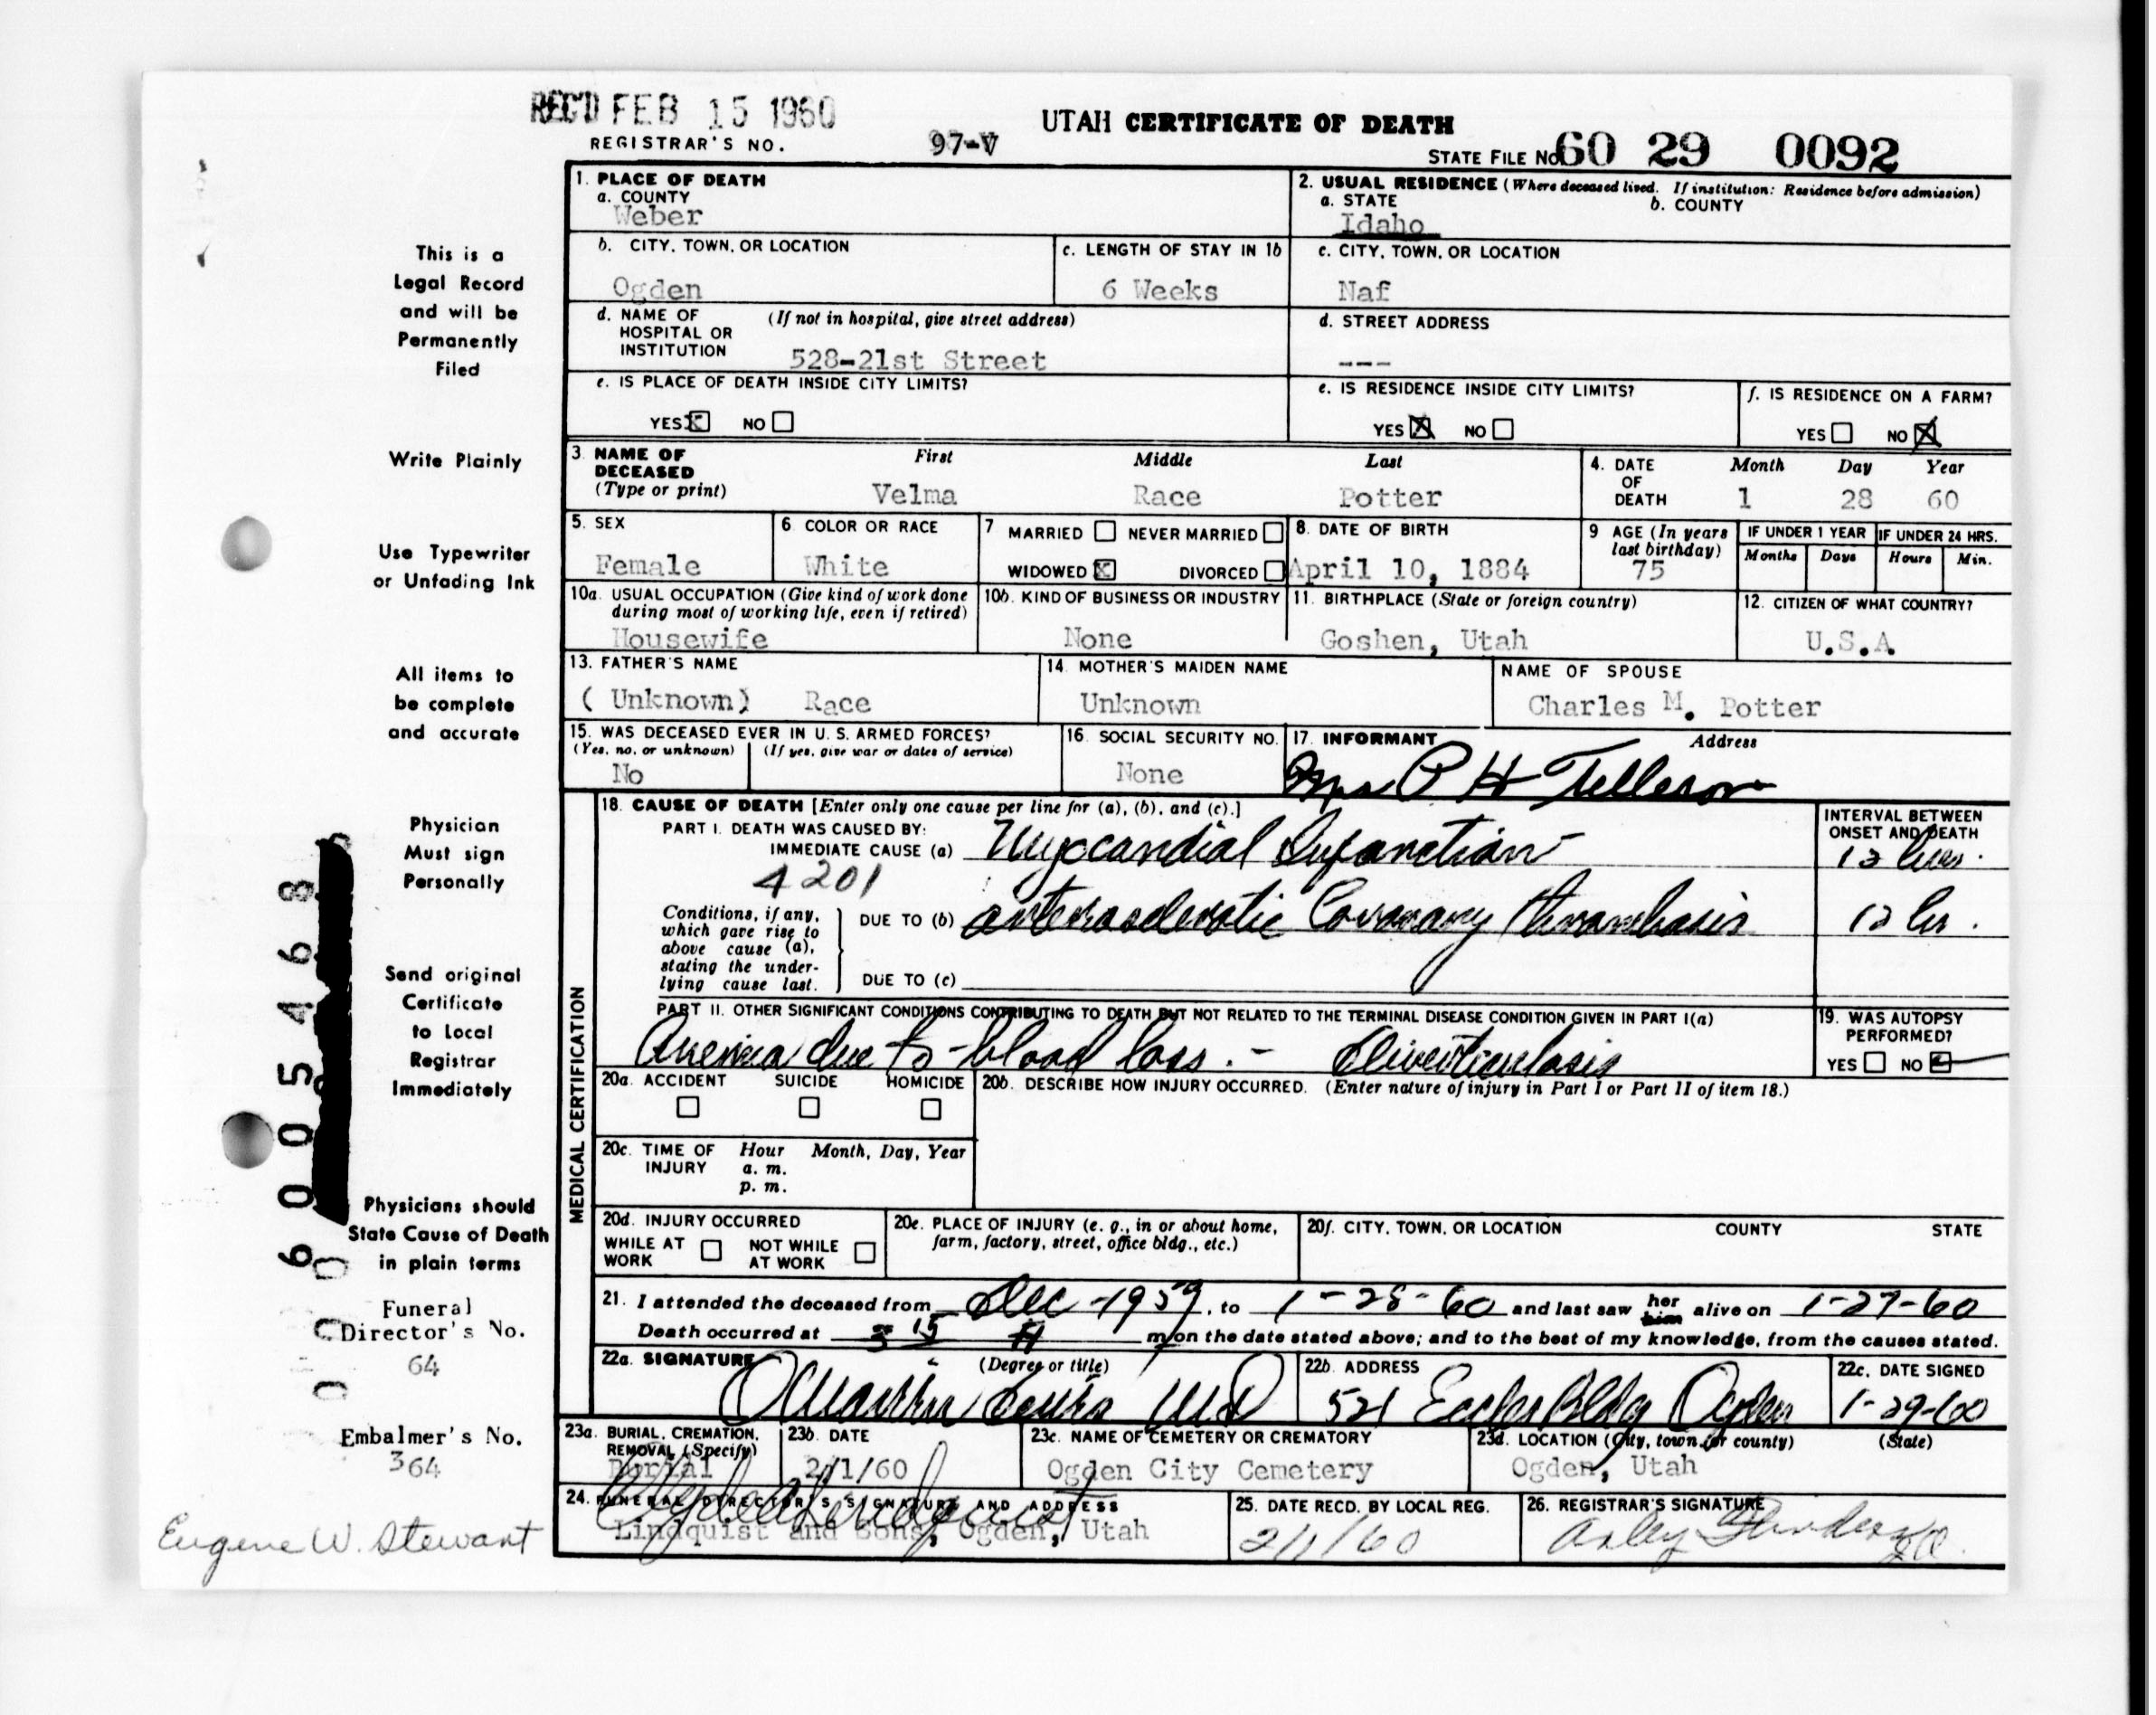 REC'D FEB 15 1960
REGISTRAR'S NO. 97-V
UTAH CERTIFICATE OF DEATH
STATE FILE No. 60 29 0092
This is a
Legal Record
and will be
Permanently
Filed
Write Plainly
Use Typewriter
or Unfading Ink
All items to
be complete
and accurate
Physician
Must sign
Personally
Send original
Certificate
to Local
Registrar
Immediately
Physicians should
State Cause of Death
in plain terms
Funeral
Director's No.
64
Embalmer's No.
364
Eugene W. Stewart
6005468
1. PLACE OF DEATH
a. COUNTY
Weber
2. USUAL RESIDENCE (Where deceased lived. If institution: Residence before admission)
a. STATE b. COUNTY
Idaho
b. CITY, TOWN, OR LOCATION
Ogden
c. LENGTH OF STAY IN 1b
6 Weeks
c. CITY, TOWN, OR LOCATION
Naf
d. NAME OF (If not in hospital, give street address)
HOSPITAL OR
INSTITUTION 528-21st Street
d. STREET ADDRESS
---
e. IS PLACE OF DEATH INSIDE CITY LIMITS?
YES X NO
e. IS RESIDENCE INSIDE CITY LIMITS?
YES X NO
f. IS RESIDENCE ON A FARM?
YES NO X
3. NAME OF First Middle Last
DECEASED
(Type or print) Velma Race Potter
4. DATE Month Day Year
OF
DEATH 1 28 60
5. SEX
Female
6. COLOR OR RACE
White
7 MARRIED NEVER MARRIED
WIDOWED X DIVORCED
8. DATE OF BIRTH
April 10, 1884
9 AGE (In years
last birthday)
75
IF UNDER 1 YEAR IF UNDER 24 HRS.
Months Days Hours Min.
10a. USUAL OCCUPATION (Give kind of work done
during most of working life, even if retired)
Housewife
10b. KIND OF BUSINESS OR INDUSTRY
None
11. BIRTHPLACE (State or foreign country)
Goshen, Utah
12. CITIZEN OF WHAT COUNTRY?
U.S.A
13. FATHER'S NAME
( Unknown) Race
14. MOTHER'S MAIDEN NAME
Unknown
NAME OF SPOUSE
Charles M. Potter
15. WAS DECEASED EVER IN U. S. ARMED FORCES?
(Yes, no, or unknown) (If yes, give war or dates of service)
No
16. SOCIAL SECURITY NO.
None
17. INFORMANT Address
Mrs P H Telleson
MEDICAL CERTIFICATION
18. CAUSE OF DEATH [Enter only one cause per line for (a), (b), and (c).]
PART I. DEATH WAS CAUSED BY:
IMMEDIATE CAUSE (a) Myocardial Infarction
4201
INTERVAL BETWEEN
ONSET AND DEATH
12 hrs.
Conditions, if any,
which gave rise to
above cause (a),
stating the under-
lying cause last.
DUE TO (b) arteriosclerotic Coronary thrombosis 12 hr.
DUE TO (c)
PART II. OTHER SIGNIFICANT CONDITIONS CONTRIBUTING TO DEATH BUT NOT RELATED TO THE TERMINAL DISEASE CONDITION GIVEN IN PART I(a)
Anemia due to blood loss. - Diverticulosis
19. WAS AUTOPSY
PERFORMED?
YES NO
20a. ACCIDENT SUICIDE HOMICIDE
20b. DESCRIBE HOW INJURY OCCURRED. (Enter nature of injury in Part I or Part II of item 18.)
20c. TIME OF Hour Month, Day, Year
INJURY a. m.
p. m.
20d. INJURY OCCURRED
WHILE AT NOT WHILE
WORK AT WORK
20e. PLACE OF INJURY (e. g., in or about home,
farm, factory, street, office bldg., etc.)
20f. CITY, TOWN, OR LOCATION COUNTY STATE
21. I attended the deceased from Dec - 1959, to 1-28-60 and last saw her him alive on 1-27-60
Death occurred at 3 15 A m, on the date stated above; and to the best of my knowledge, from the causes stated.
22a. SIGNATURE (Degree or title)
MD
22b. ADDRESS
521 Eccles Bldg Ogden
22c. DATE SIGNED
1-29-60
23a. BURIAL, CREMATION,
REMOVAL (Specify)
Burial
23b. DATE
2/1/60
23c. NAME OF CEMETERY OR CREMATORY
Ogden City Cemetery
23d. LOCATION (City, town, or county) (State)
Ogden, Utah
24. FUNERAL DIRECTOR'S SIGNATURE AND ADDRESS
Lindquist and Sons, Ogden, Utah
25. DATE RECD. BY LOCAL REG.
2/1/60
26. REGISTRAR'S SIGNATURE